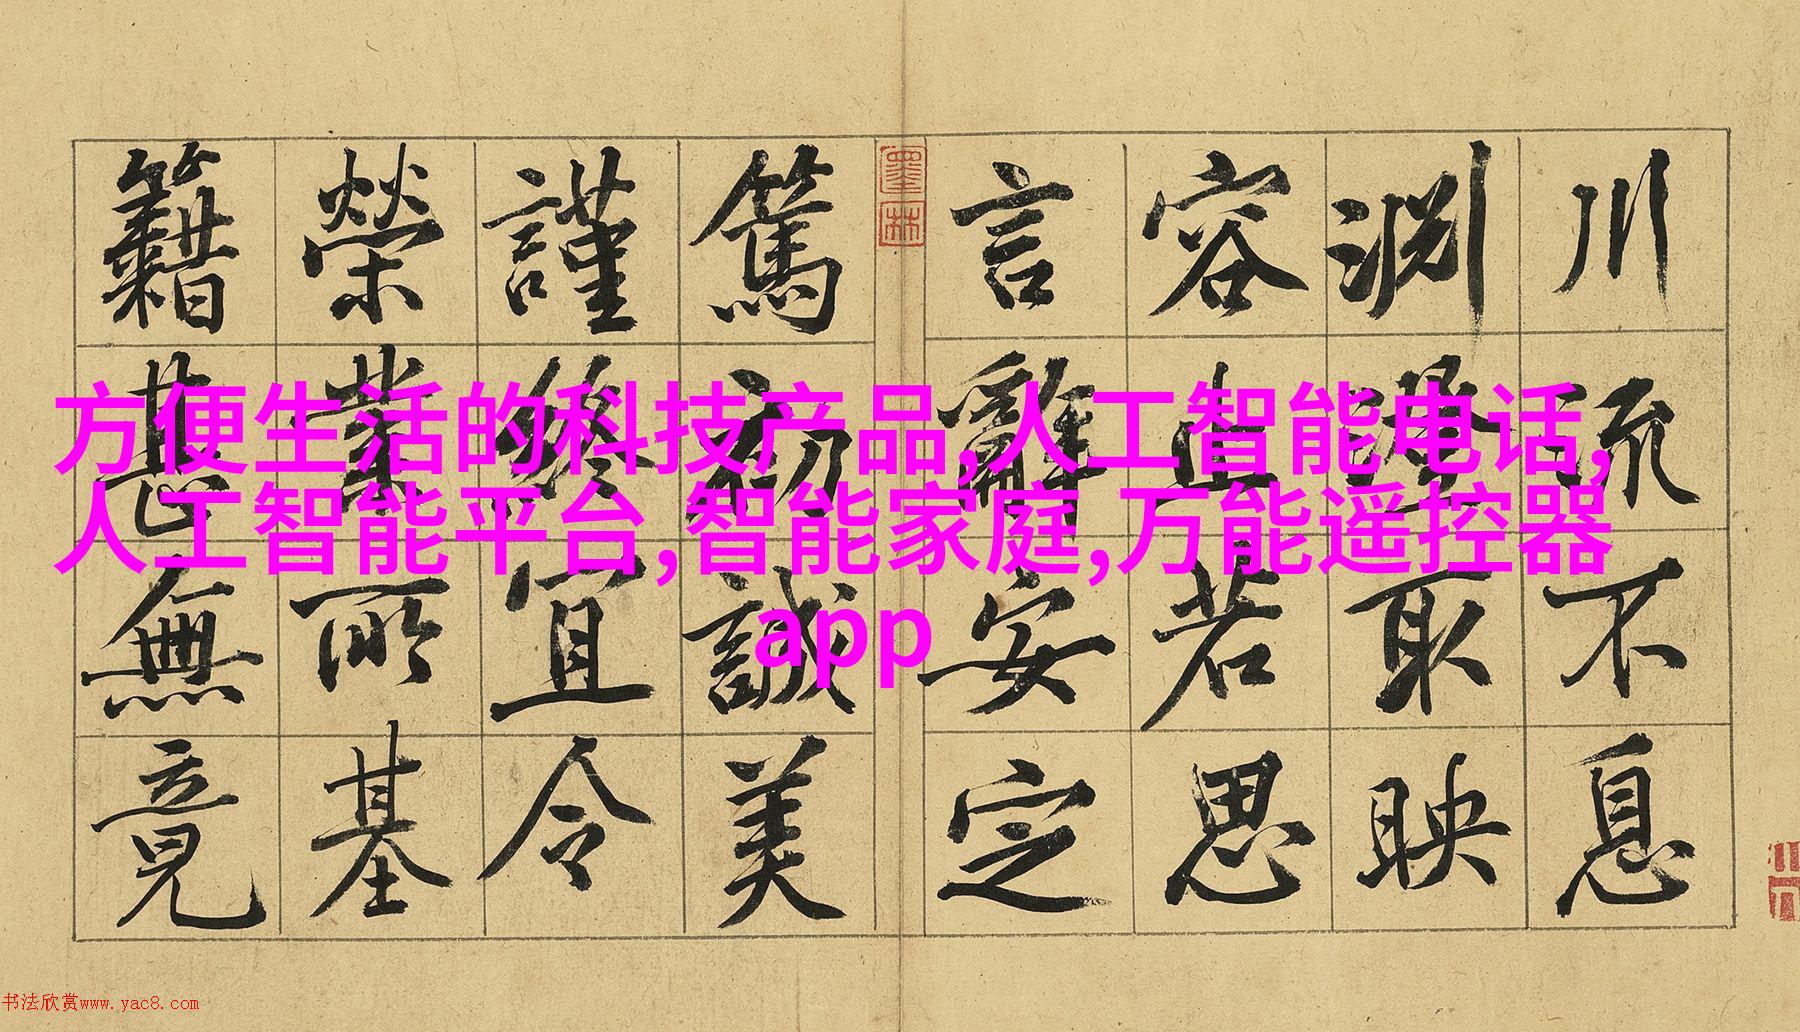 方便生活的科技产品,人工智能电话,
人工智能平台,智能家庭,万能遥控器
app
川流不息
淵澄取映
容止若思
言辭安定
墨林
篤初誠美
謹終宜令
榮業所基
籍甚無竟
书法欣赏www.yac8.com